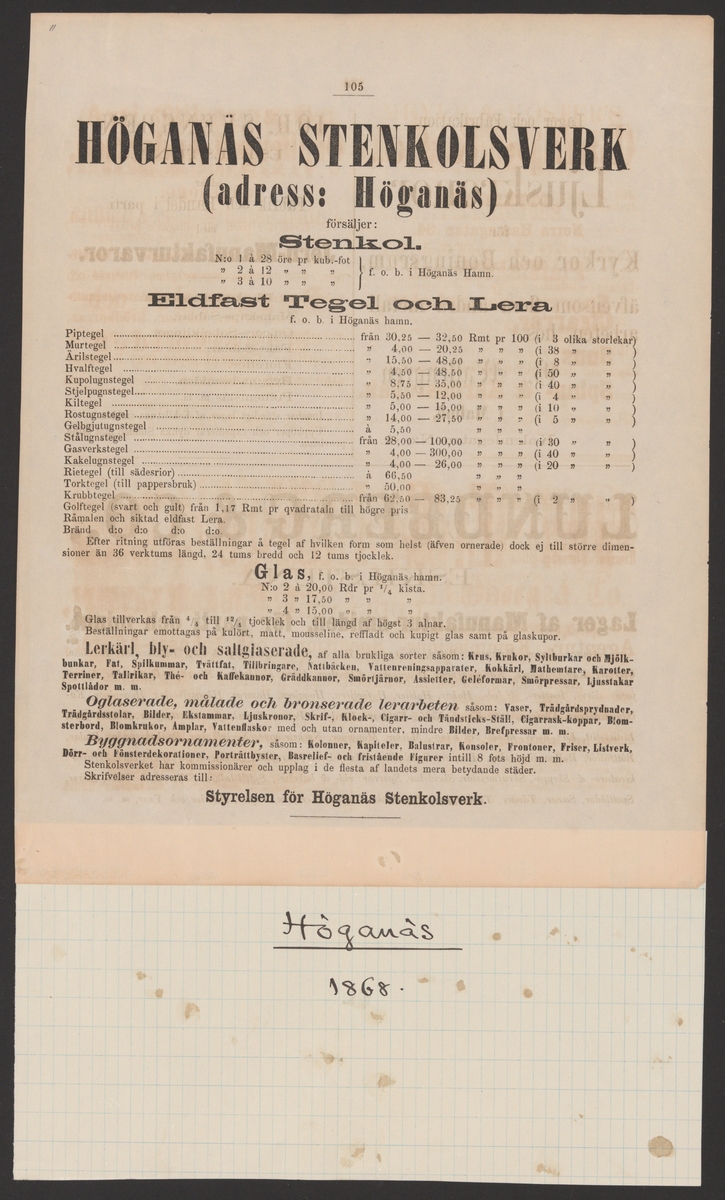 105
HÖGANÄS STENKOLSVERK
(adress: Höganäs)
försäljer:
Stenkol.
N:o 1 à 28 öre pr kub.-fot
„ 2 à 12 „ „ „
„ 3 à 10 „ „ „
f. o. b. i Höganäs Hamn.
Eldfast Tegel och Lera
f. o. b. i Höganäs hamn.
Piptegel från 30,25 — 32,50 Rmt pr 100 (i 3 olika storlekar)
Murtegel „ 4,00 — 20,25 „ „ „ (i 38 „ „ )
Ärilstegel „ 15,50 — 48,50 „ „ „ (i 8 „ „ )
Hvalftegel „ 4,50 — 48,50 „ „ „ (i 50 „ „ )
Kupolugnstegel „ 8,75 — 35,00 „ „ „ (i 40 „ „ )
Stjelpugnstegel „ 5,50 — 12,00 „ „ „ (i 4 „ „ )
Kiltegel „ 5,00 — 15,00 „ „ „ (i 10 „ „ )
Rostugnstegel „ 14,00 — 27,50 „ „ „ (i 5 „ „ )
Gelbgjutugnstegel à 5,50 „ „ „
Stålugnstegel från 28,00 — 100,00 „ „ „ (i 30 „ „ )
Gasverkstegel „ 4,00 — 300,00 „ „ „ (i 40 „ „ )
Kakelugnstegel „ 4,00 — 26,00 „ „ „ (i 20 „ „ )
Rietegel (till sädesrior) à 66,50 „ „ „
Torktegel (till pappersbruk) „ 50,00 „ „ „
Krubbtegel från 62,50 — 83,25 „ „ „ (i 2 „ „ )
Golftegel (svart och gult) från 1,17 Rmt pr qvadrataln till högre pris
Råmalen och siktad eldfast Lera.
Bränd d:o d:o d:o d:o.
Efter ritning utföras beställningar å tegel af hvilken form som helst (äfven ornerade) dock ej till större dimen-
sioner än 36 verktums längd, 24 tums bredd och 12 tums tjocklek.
Glas, f. o. b. i Höganäs hamn.
N:o 2 à 20,00 Rdr pr 1/4 kista.
„ 3 „ 17,50 „ „ „
„ 4 „ 15,00 „ „ „
Glas tillverkas från 4/4 till 12/4 tjocklek och till längd af högst 3 alnar.
Beställningar emottagas på kulört, matt, mousseline, reffladt och kupigt glas samt på glaskupor.
Lerkärl, bly- och saltglaserade, af alla brukliga sorter såsom: Krus, Krukor, Syltburkar och Mjölk-
bunkar, Fat, Spilkummar, Tvättfat, Tillbringare, Nattbäcken, Vattenreningsapparater, Kokkärl, Mathemtare, Karotter,
Terriner, Tallrikar, Thé- och Kaffekannor, Gräddkannor, Smörtjärnor, Assietter, Geléformar, Smörpressar, Ljusstakar
Spottlådor m. m.
Oglaserade, målade och bronserade lerarbeten såsom: Vaser, Trädgårdsprydnader,
Trädgårdsstolar, Bilder, Ekstammar, Ljuskronor, Skrif-, Klock-, Cigarr- och Tändsticks-Ställ, Cigarrask-koppar, Blom-
sterbord, Blomkrukor, Amplar, Vattenflaskor med och utan ornamenter, mindre Bilder, Brefpressar m. m.
Byggnadsornamenter, såsom: Kolonner, Kapiteler, Balustrar, Konsoler, Frontoner, Friser, Listverk,
Dörr- och Fönsterdekorationer, Porträttbyster, Basrelief- och fristående Figurer intill 8 fots höjd m. m.
Stenkolsverket har kommissionärer och upplag i de flesta af landets mera betydande städer.
Skrifvelser adresseras till:
Styrelsen för Höganäs Stenkolsverk.
Höganäs
1868.